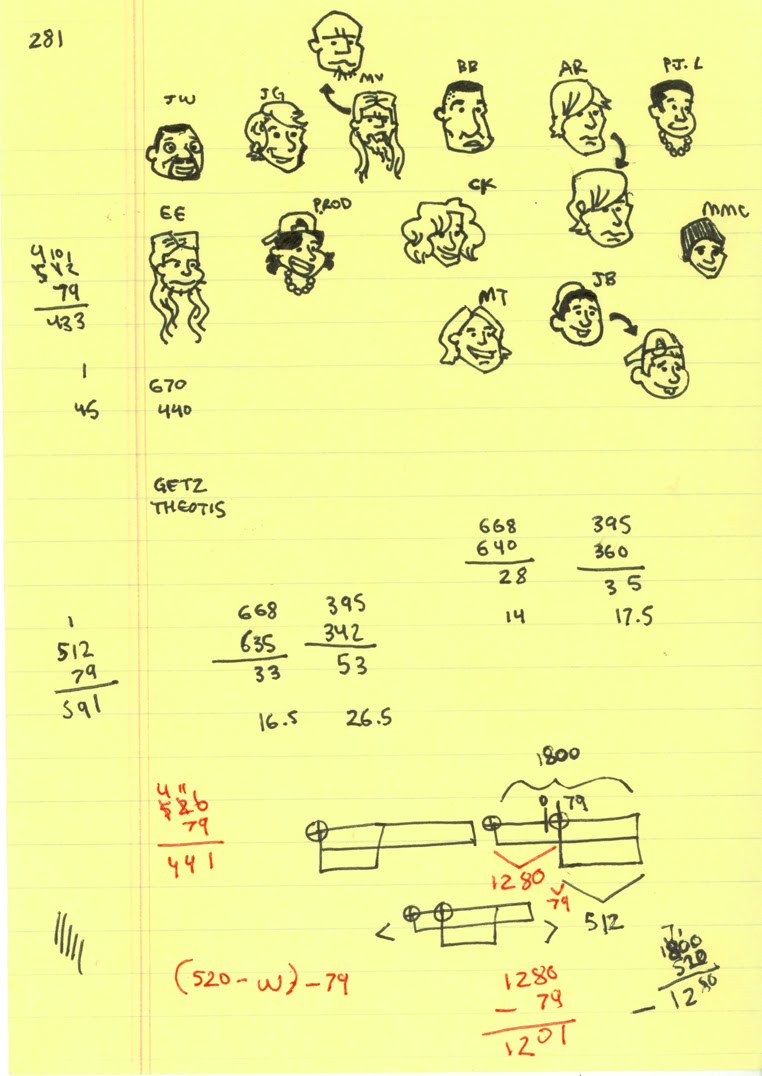 281
JW
JG
MV
BB
AR
PJ.L
EE
PROD
CK
MMC
MT
JB
4 10 1
512
79
433
1
45
670
440
GETZ
THEOTIS
668
640
28
14
395
360
35
17.5
668
635
33
16.5
395
342
53
26.5
1
512
79
591
4 11
526
79
441
1800
0 79
1280
79
512
(520 - W) - 79
1280
- 79
1201
1800
520
- 1280